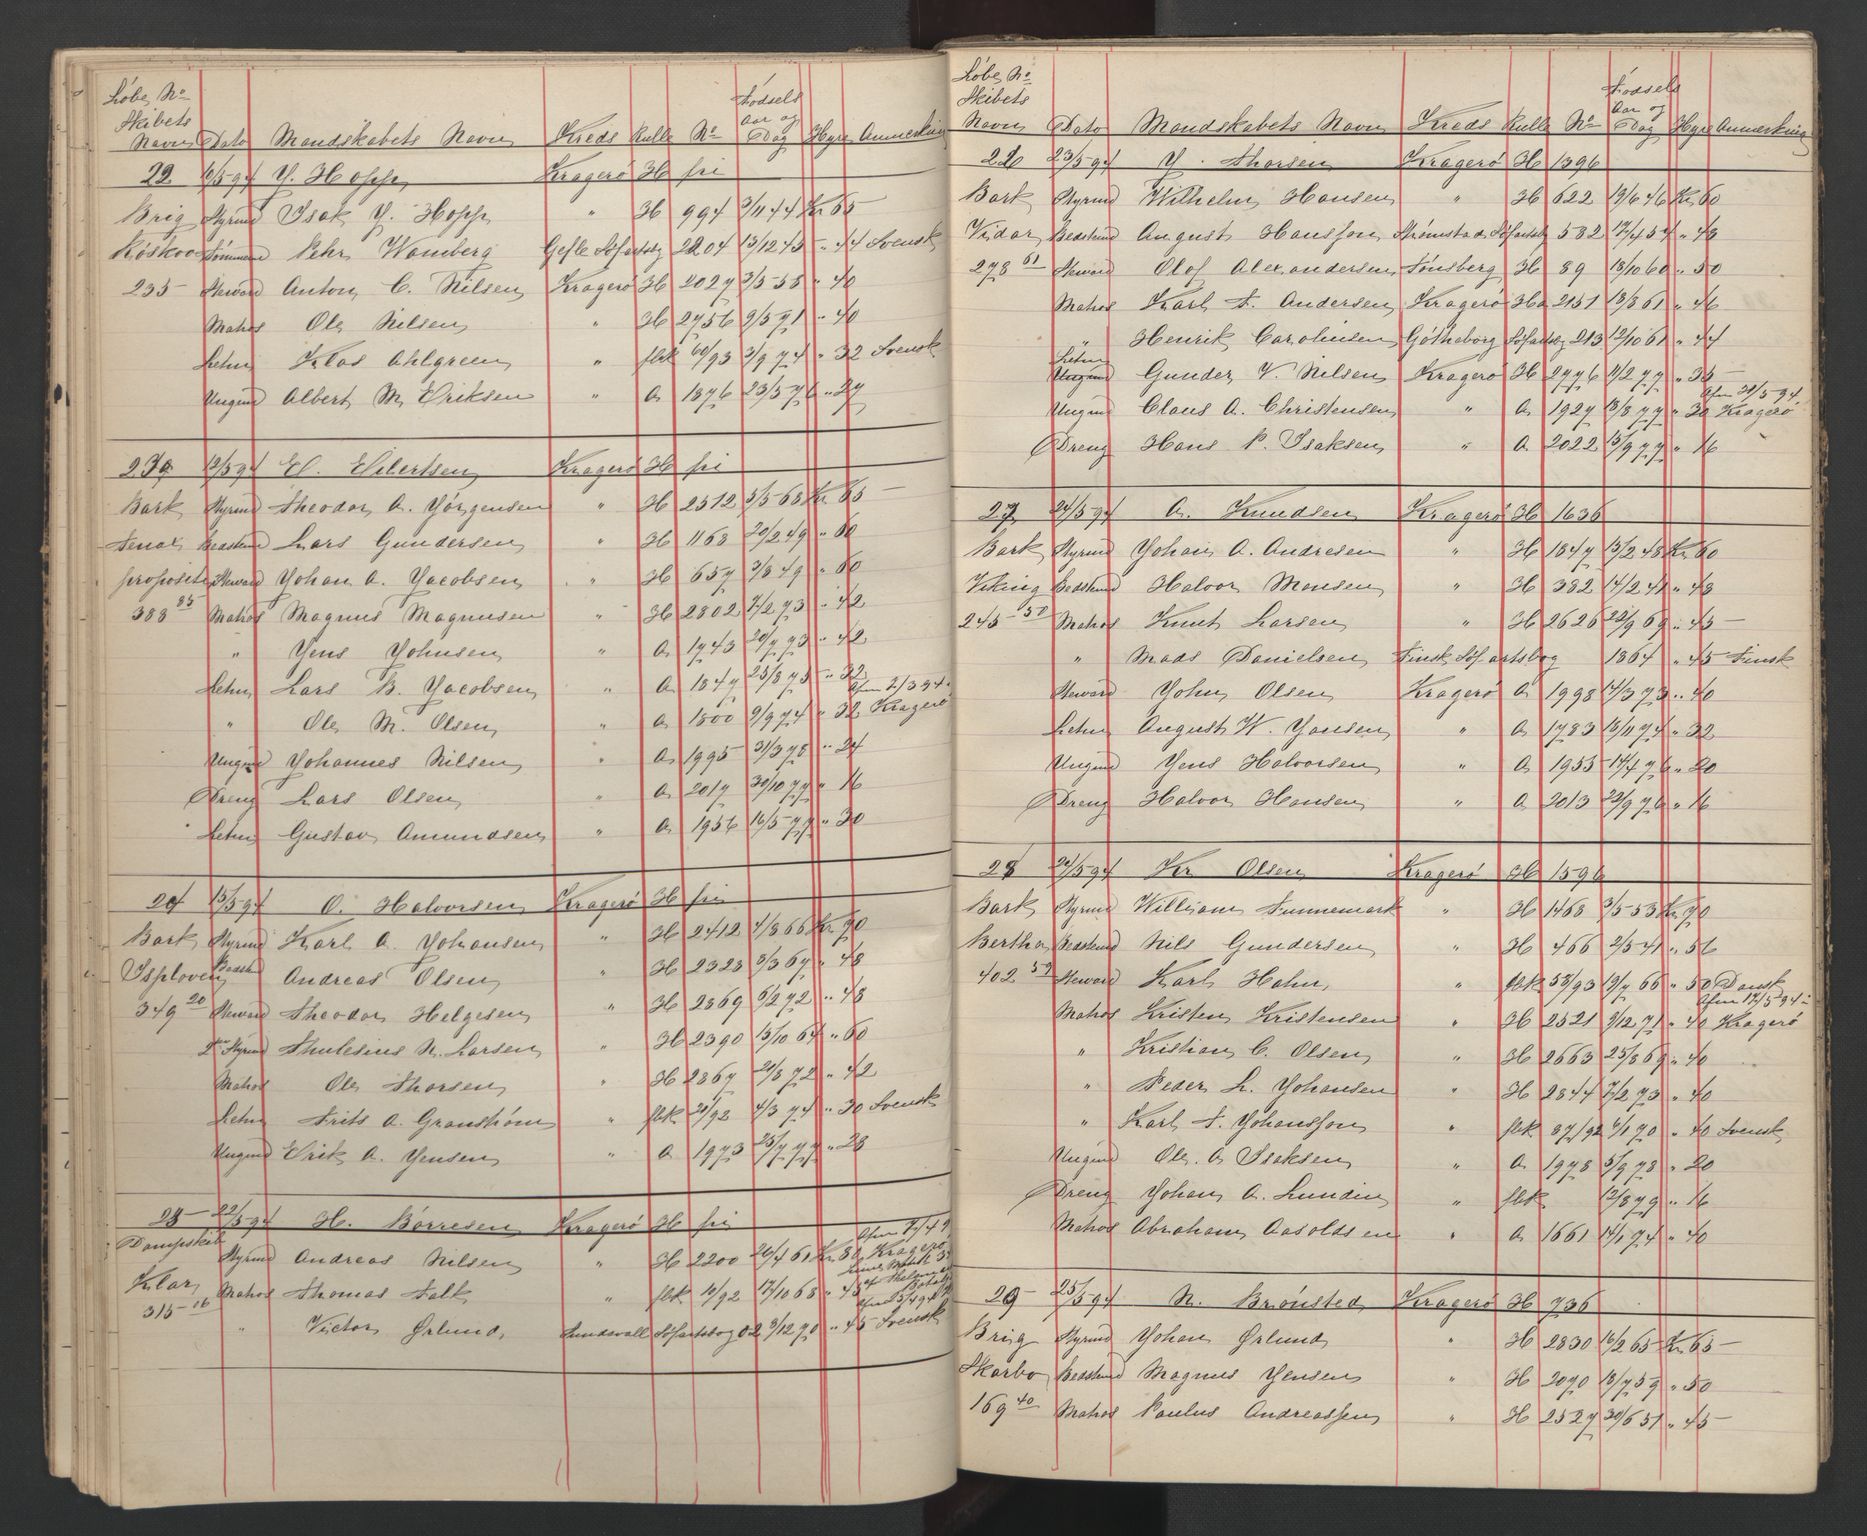 Løbe No
Skibets
Navn Dato Mandskabets Navn Kreds Rulle No Fødsels Aar og Dag Hyre Anmerkning
22 /5 94 J. Hopp Kragerø H fri
Brig Styrmd Isak J. Hopp " H 994 3/11 44 Kr 65
Tømmermd Pehr Wamberg Gefle Søfartsbg 2204 13/12 45 " 44 Svensk
235 Steward Anton C. Nilsen Kragerø H 2027 3/5 58 " 40
Matros Ole Nilsen " H 2756 9/5 71 " 40
Letm Klas Ahlgreen " flbk 60/93 3/9 74 " 32 Svensk
Ungmd Albert M. Eriksen " A 1876 23/5 76 " 27
23 12/5 94 El. Eilertsen Kragerø H fri
Bark Styrmd Theodor A. Jørgensen " H 2512 5/5 68 Kr 65
Senex Bedstemd Lars Gundersen " H 1168 20/2 49 " 60
propositi Steward Johan A. Jacobsen " H 657 3/8 49 " 60
388 85 Matros Magnus Magnusen " H 2802 7/2 73 " 42
" Jens Johnsen " A 1743 20/7 73 " 42
Letm Lars B. Jacobsen " A 1847 25/8 75 " 32
" Ole M. Olsen " A 1800 9/9 74 " 32 Afm 2/3 94 Kragerø
Ungmd Johannes Nilsen " A 1995 31/3 78 " 24
Dreng Lars Olsen " A 2017 30/10 77 " 16
Letm Gustav Amundsen " A 1956 16/5 77 " 30
24 15/5 94 O. Halvorsen Kragerø H fri
Bark Styrmd Karl A. Johansen " H 2412 4/8 66 Kr 70
Isploven Bedstmd Andreas Olsen " H 2323 3/3 67 " 48
349 20 Steward Theodor Helgesen " H 2869 6/2 72 " 48
2den Styrmd Thulesius N. Larsen " H 2390 13/10 64 " 60
Matros Ole Thorsen " H 2867 21/8 72 " 42
Letm Frits A. Granstrøm " flbk 20/92 4/3 74 " 30 Svensk
Ungmd Erik A. Jensen " A 1973 25/7 77 " 28
25 22/5 94 H. Børresen Kragerø H fri
Dampskib Styrmd Andreas Nilsen " H 2200 20/4 61 Kr 80 Kragerø
Klar Matros Thomas Falk " flbk 10/92 17/10 68 " 45
315 16 " Victor Ørlund Sundsvall Søfartsbog 02 9/12 70 " 45 Svensk
Løbe No
Skibets
Navn Dato Mandskabets Navn Kreds Rulle No Fødsels Aar og Dag Hyre Anmerkning
26 23/5 94 J. Thorsen Kragerø H 1396
Bark Styrmd Wilhelm Hansen " H 622 19/6 46 Kr 60
Vidar Bedstemd August Hansson Strømstad Søfartsbg 582 17/4 54 " 48
278 61 Steward Olof Alexandersen Tønsberg H 89 18/10 60 " 50
Matros Karl F. Andersen Kragerø H 2151 13/8 61 " 46
" Henrik Carolusen Gøtheborg Søfartsbg 213 12/10 61 " 44
Letm Gunder V. Nilsen Kragerø H 2776 11/2 77 " 35
Ungmd Claus A. Christensen " A 1927 13/8 77 " 30 Afm 28/5 94 Kragerø
Dreng Hans P. Isaksen " A 2022 15/9 77 " 16
27 24/5 94 A. Knudsen Kragerø H 1636
Bark Styrmd Johan A. Andresen " H 1847 13/2 48 Kr 60
Viking Bedstemd Halvor Monsen " H 382 14/2 41 " 48
245 50 Matros Knut Larsen " H 2626 22/9 69 " 45
" Mads Danielsen Finsk Søfartsbog 1864 " 45 Finsk
Steward John Olsen Kragerø A 1998 14/3 73 " 40
Letm August W. Jansen " A 1783 13/11 74 " 32
Ungmd Jens Halvorsen " A 1955 14/4 76 " 20
Dreng Halvor Hansen " A 2013 22/9 76 " 16
28 24/5 94 Kr. Olsen Kragerø H 1596
Bark Styrmd William Tunnemark " H 1468 3/5 53 Kr 70
Bertha Bedstemd Nils Gundersen " H 466 2/5 41 " 56
402 59 Steward Karl Hahn " flbk 58/93 19/7 66 " 50 Dansk
Matros Kristen Kristensen " H 2521 9/12 71 " 40 Afm 17/5 94 Kragerø
" Kristian C. Olsen " H 2663 25/8 69 " 40
" Peder L. Johansen " H 2844 7/2 73 " 40
" Karl F. Johansson " flbk 87/92 6/1 70 " 40 Svensk
Ungmd Ole A. Isaksen " A 1978 5/9 78 " 20
Dreng Johan A. Lundin " flbk 12/8 79 " 16
Matros Abraham Aasoldsen " A 1661 14/1 74 " 40
29 25/5 94 N. Brønsted Kragerø H 736
Brig Styrmd Johan Ørlund " H 2830 16/2 65 Kr 65
Skarbo Bedstemd Magnus Jensen " H 2070 18/7 59 " 50
169 40 Matros Paulus Andreassen " H 2527 30/6 51 " 45